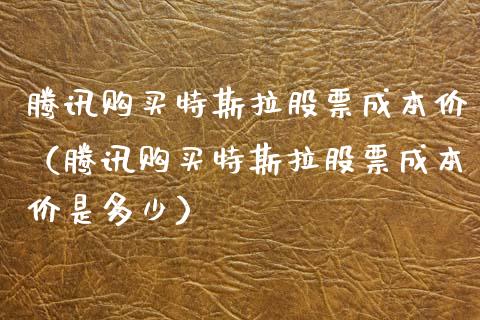 腾讯购买特斯拉股票成本价
（腾讯购买特斯拉股票成本
价是多少）